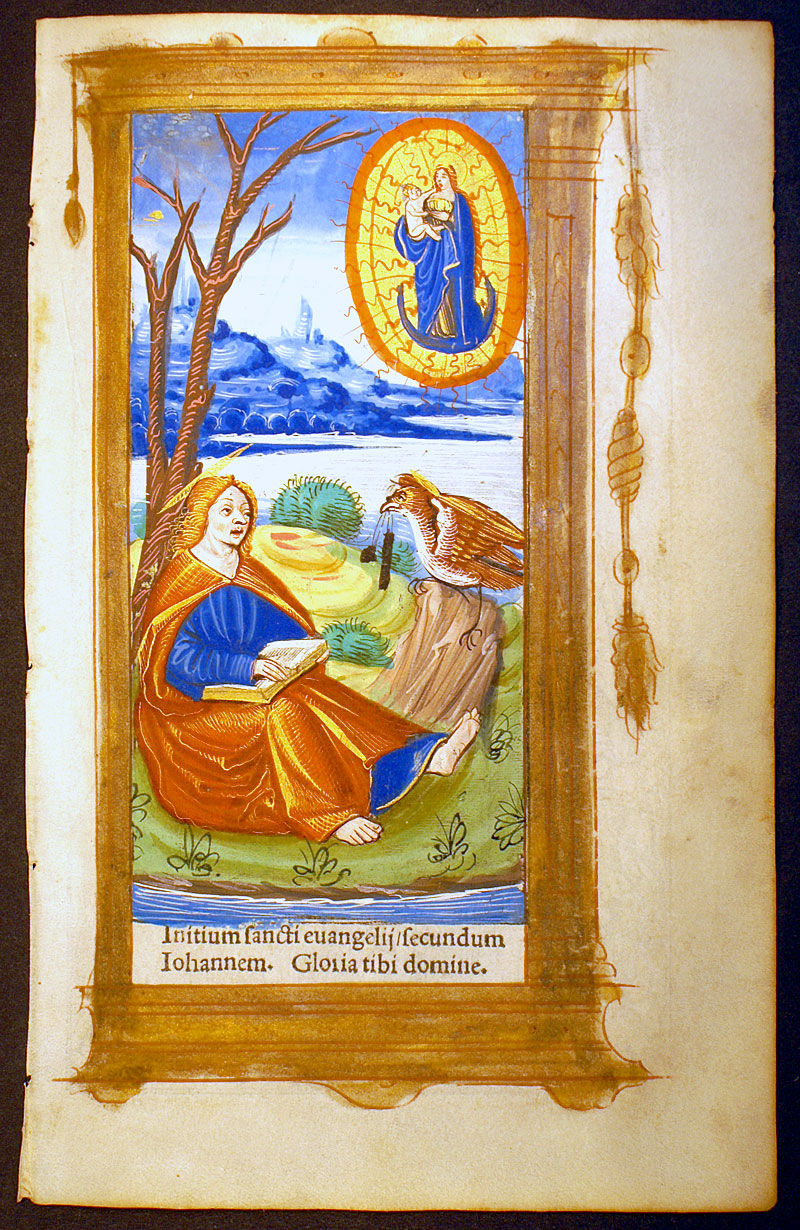 Initium sancti euangelij/secundum
Iohannem. Gloria tibi domine.